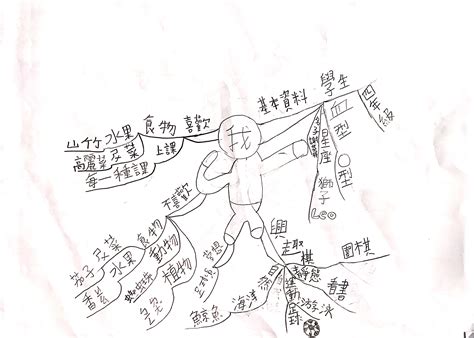 我
基本資料
學生
四年級
血型
O型
星座
獅子
Leo
喜歡
食物
水果
山竹
菜
高麗菜
上課
每一種課
不喜歡
食物
菜
茄子
水果
香瓜
動物
植物
興趣
棋
圍棋
靜態
看書
運動
游泳
夢想
海洋
鯨魚